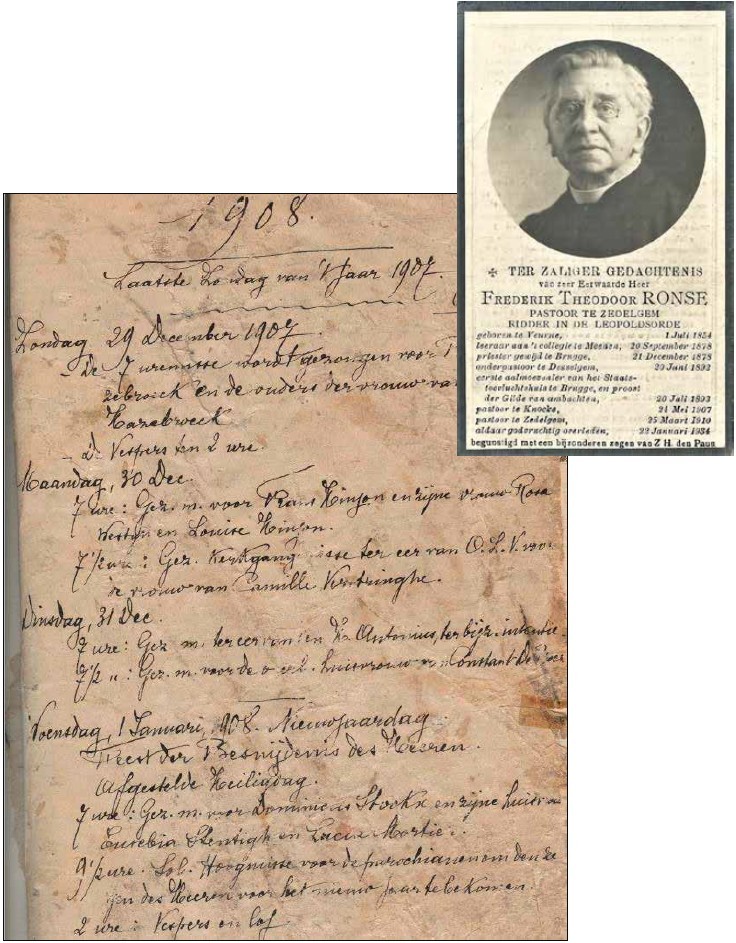 1908.
Laatste Zondag van 't Jaar 1907.
Zondag 29 December 1907
- De 7 urenmisse wordt gezongen voor
zebroeck en de ouders der vrouw van
Hazebroeck
- De Vespers ten 2 ure.
Maandag, 30 Dec.
7 ure: Gez. m. voor Frans en zijne vrouw Rosa
en Louise
7 1/2 ure: Gez. Kerkgang misse ter eer van O.L.V. voor
de vrouw van Camille
Dinsdag, 31 Dec.
7 ure: Gez. m. ter eer van den H. Antonius, ter bijz. intentie.
7 1/2 ": Gez. m. voor de huisvrouw van Constant
Woensdag, 1 Januari, 1908. Nieuwjaardag
Feest der Besnijdenis des Heeren.
Afgestelde Heiligdag.
7 ure: Gez. m. voor Dominicus en zijne huisv
Eusebia en
9 1/2 ure. Sol. Hoogmisse voor de parochianen om den ze
gen des Heeren voor het nieuw jaar te bekomen.
2 ure: Vespers en lof
✠ TER ZALIGER GEDACHTENIS
van zeer Eerwaarde Heer
FREDERIK THEODOOR RONSE
PASTOOR TE ZEDELGEM
RIDDER IN DE LEOPOLDSORDE
geboren te Veurne, 1 Juli 1854
leeraar aan 't collegie te Meenen, 20 September 1878
priester gewijd te Brugge, 21 December 1878
onderpastoor te Desselgem, 20 Juni 1892
eerste aalmoezenier van het Staats-
toevluchtshuis te Brugge, en proost
der Gilde van ambachten, 20 Juli 1893
pastoor te Knocke, 21 Mei 1907
pastoor te Zedelgem, 25 Maart 1910
aldaar godvruchtig overleden, 22 Januari 1934
begunstigd met een bijzonderen zegen van Z.H. den Paus